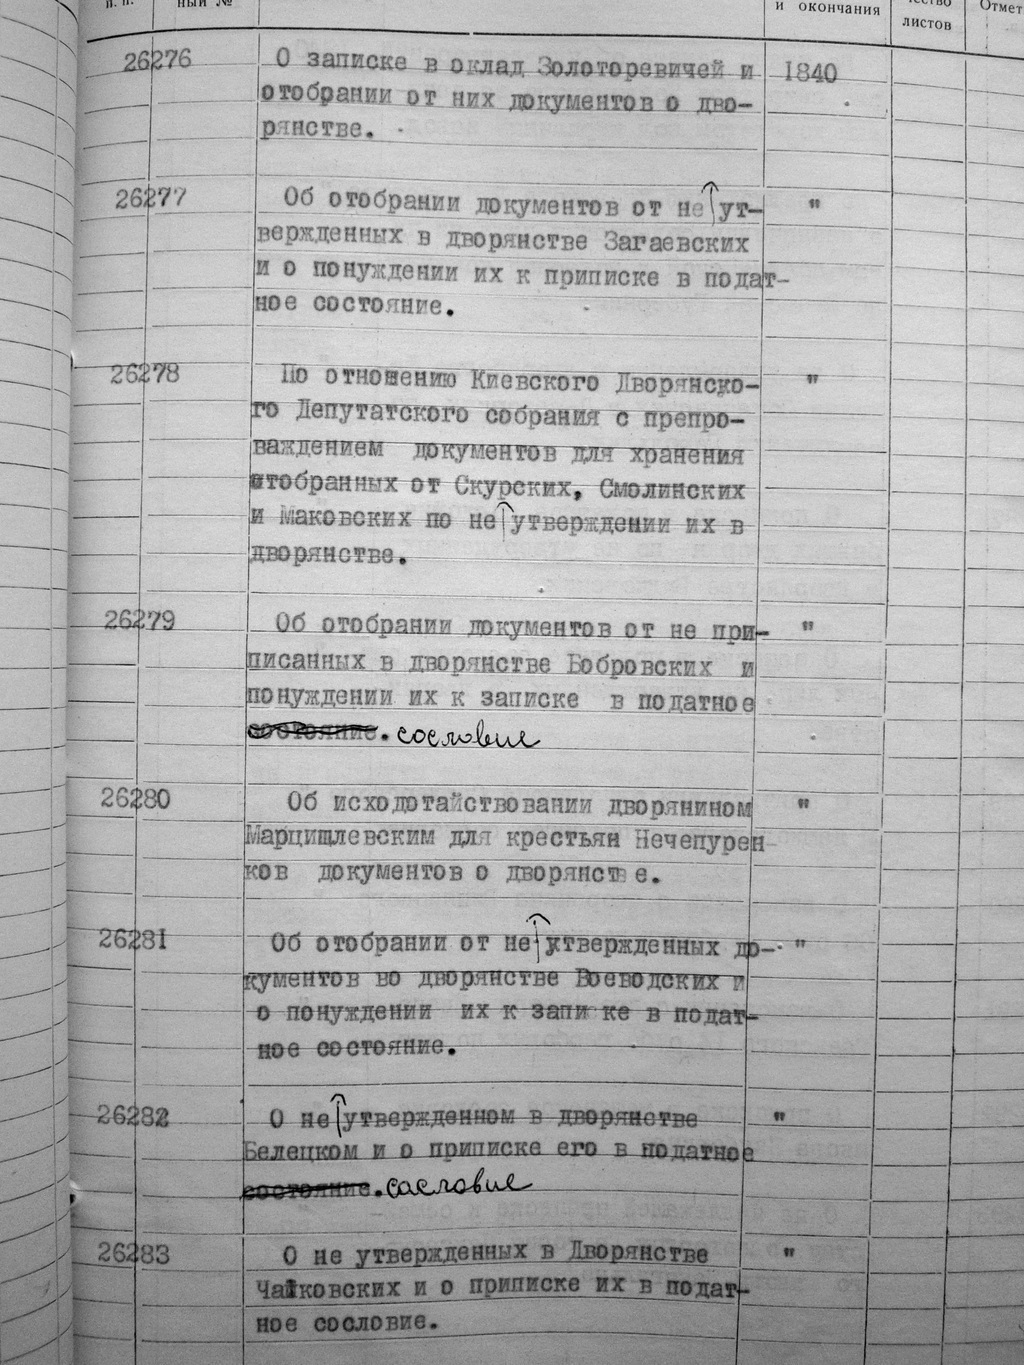 п. п.
ный №
и окончания
чество
листов
Отмет
26276 О записке в оклад Золоторевичей и 1840
отобрании от них документов о дво-
рянстве.
26277 Об отобрании документов от не ут- "
вержденных в дворянстве Загаевских
и о понуждении их к приписке в подат-
ное состояние.
26278 По отношению Киевского Дворянско- "
го Депутатского собрания с препро-
важдением документов для хранения
отобранных от Скурских, Смолинских
и Маковских по не утверждении их в
дворянстве.
26279 Об отобрании документов от не при- "
писанных в дворянстве Бобровских и
понуждении их к записке в податное
состояние. сословие
26280 Об исходотайствовании дворянином "
Марцишлевским для крестьян Нечепурен-
ков документов о дворянстве.
26281 Об отобрании от не утвержденных до- "
кументов во дворянстве Воеводских и
о понуждении их к запи ке в подат-
ное состояние.
26282 О не утвержденном в дворянстве "
Белецком и о приписке его в податное
состояние. сословие
26283 О не утвержденных в Дворянстве "
Чайковских и о приписке их в подат-
ное сословие.